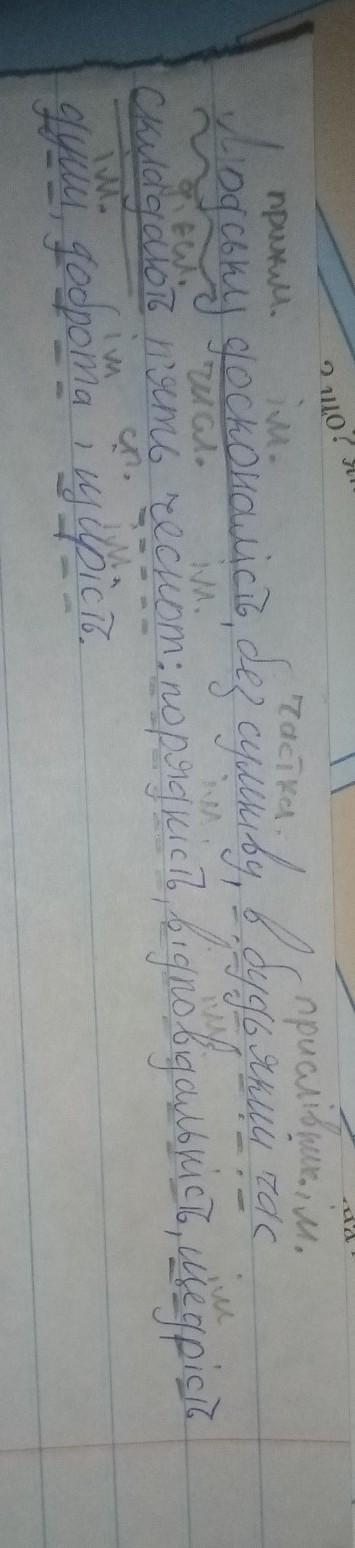 прикм. ім. частка. прислівник. ім.
Людську досконалість, без сумніву, в будь який час
дієсл. числ. ім. ім ім. ім
складають п'ять чеснот: порядність, відповідальність, щедрість
ім. ім сп. ім
душі, доброта і щирість.